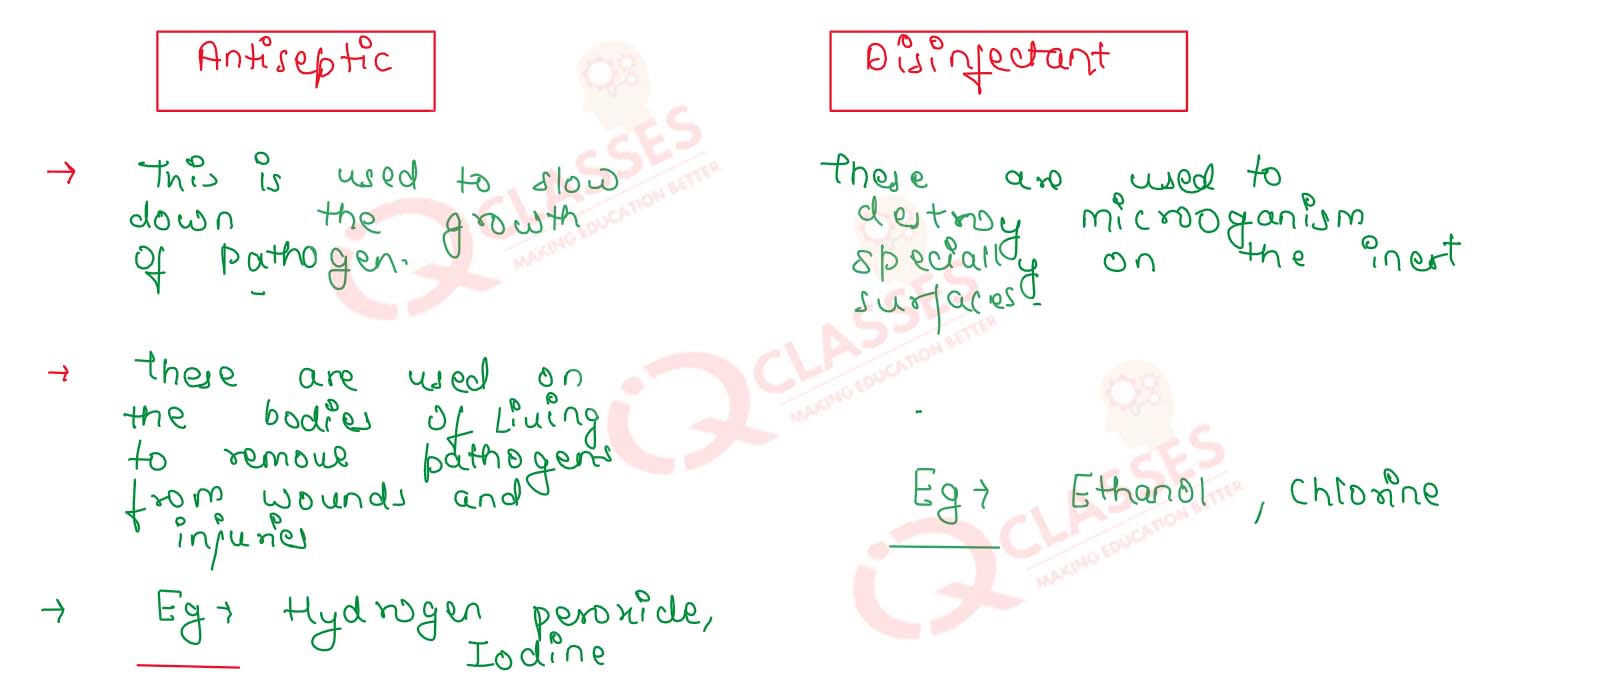 Antiseptic
→ This is used to slow
down the growth
of pathogen.
→ These are used on
the bodies of Living
to remove pathogens
from wounds and
injuries
→ Eg → Hydrogen peroxide,
Iodine
Disinfectant
These are used to
destroy microoganism
specially on the inert
surfaces.
Eg → Ethanol, Chlorine
IQ CLASSES
MAKING EDUCATION BETTER
IQ CLASSES
MAKING EDUCATION BETTER
IQ CLASSES
MAKING EDUCATION BETTER